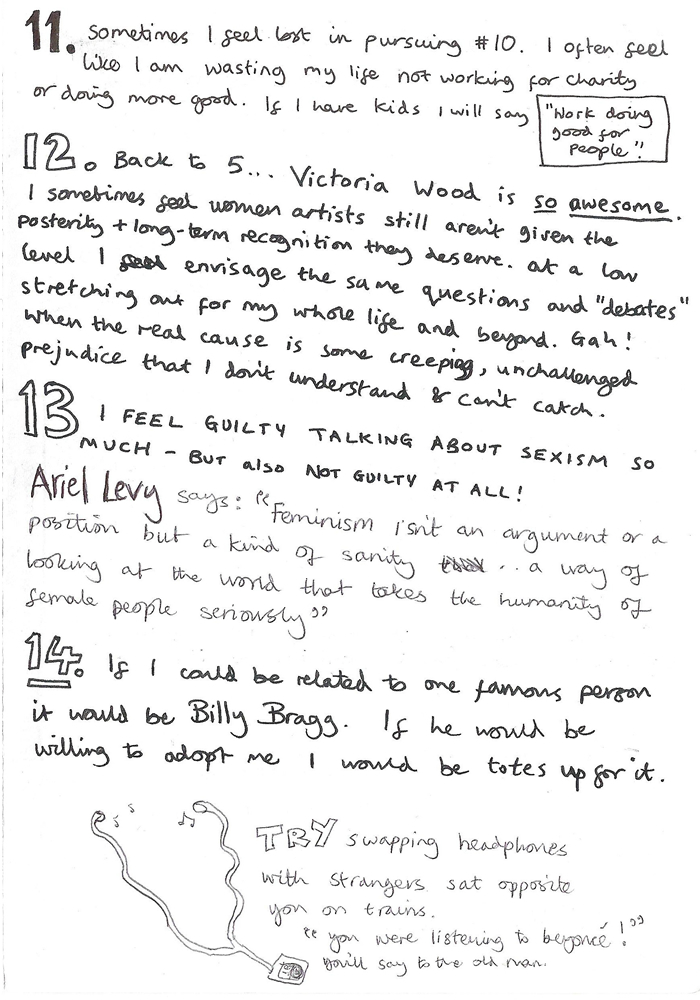 11. Sometimes I feel lost in pursuing #10. I often feel
like I am wasting my life not working for charity
or doing more good. If I have kids I will say "Work doing
good for
people"!
12. Back to 5... Victoria Wood is so awesome.
I sometimes feel women artists still aren't given the
posterity + long-term recognition they deserve. At a low
level I envisage the same questions and "debates"
stretching out for my whole life and beyond. Gah!
When the real cause is some creeping, unchallenged
prejudice that I don't understand & can't catch.
13 I FEEL GUILTY TALKING ABOUT SEXISM SO
MUCH - BUT also NOT GUILTY AT ALL!
Ariel Levy says: "Feminism isn't an argument or a
position but a kind of sanity ... a way of
looking at the world that takes the humanity of
female people seriously"
14. If I could be related to one famous person
it would be Billy Bragg. If he would be
willing to adopt me I would be totes up for it.
TRY swapping headphones
with strangers sat opposite
you on trains.
"you were listening to beyoncé!"
you'll say to the old man.